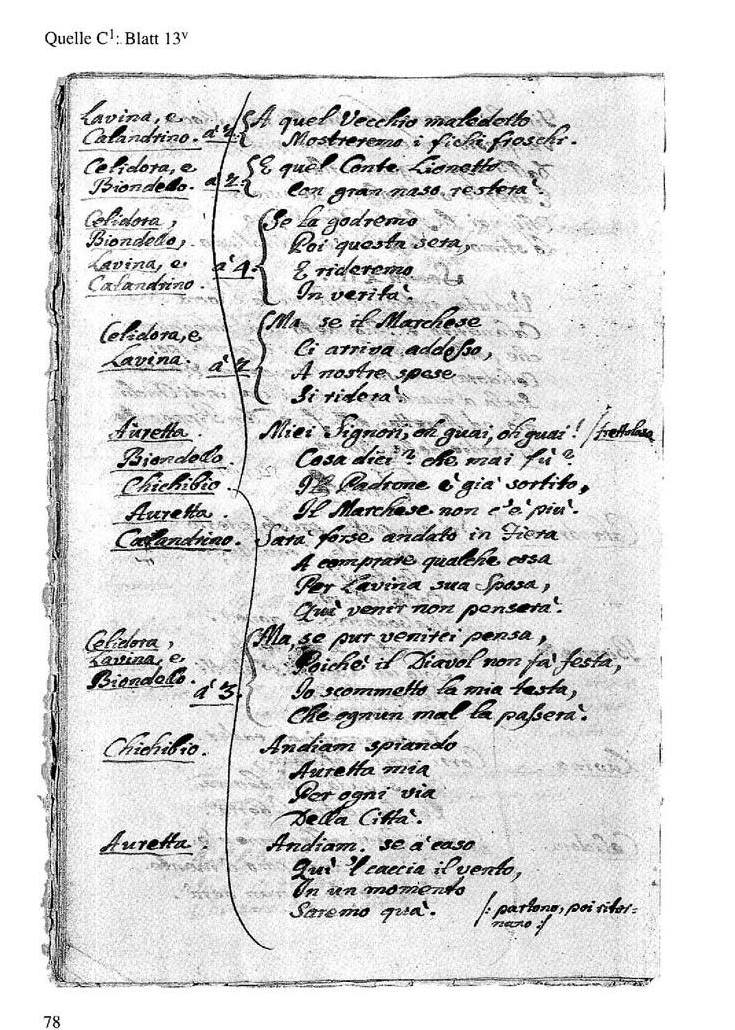 Quelle C1: Blatt 13v
Lavina, e
Calandrino. à 2. A quel Vecchio maledetto
Mostreremo i fichi freschi.
Celidora, e
Biondello. à 2. E quel Conte Lionetto
Con gran naso resterà.
Celidora,
Biondello,
Lavina, e
Calandrino. à 4. Se la godremo
Poi questa sera,
E rideremo
In verità.
Celidora, e
Lavina. à 2. Ma, se il Marchese
Ci arriva addosso,
A nostre spese
Si riderà.
Auretta. Miei Signori, oh guai, oh guai!
Biondello. Cosa dici? che mai fù?
Chichibio. Il Padrone è già sortito,
Auretta. Il Marchese non c'è più.
Calandrino. Sarà forse andato in Fiera
A comprare qualche cosa
Per Lavina sua Sposa,
Quì venir non penserà.
Celidora,
Lavina, e
Biondello. à 3. Ma, se pur venirci pensa,
Poichè il Diavol non fà festa,
Io scommetto la mia testa,
Che ognun mal la passerà.
Chichibio. Andiam spiando
Auretta mia
Per ogni via
Della Città.
Auretta. Andiam. se a caso
Quì 'l caccia il vento,
In un momento
Saremo quà. /: partono, poi ritor=
nano :/
78